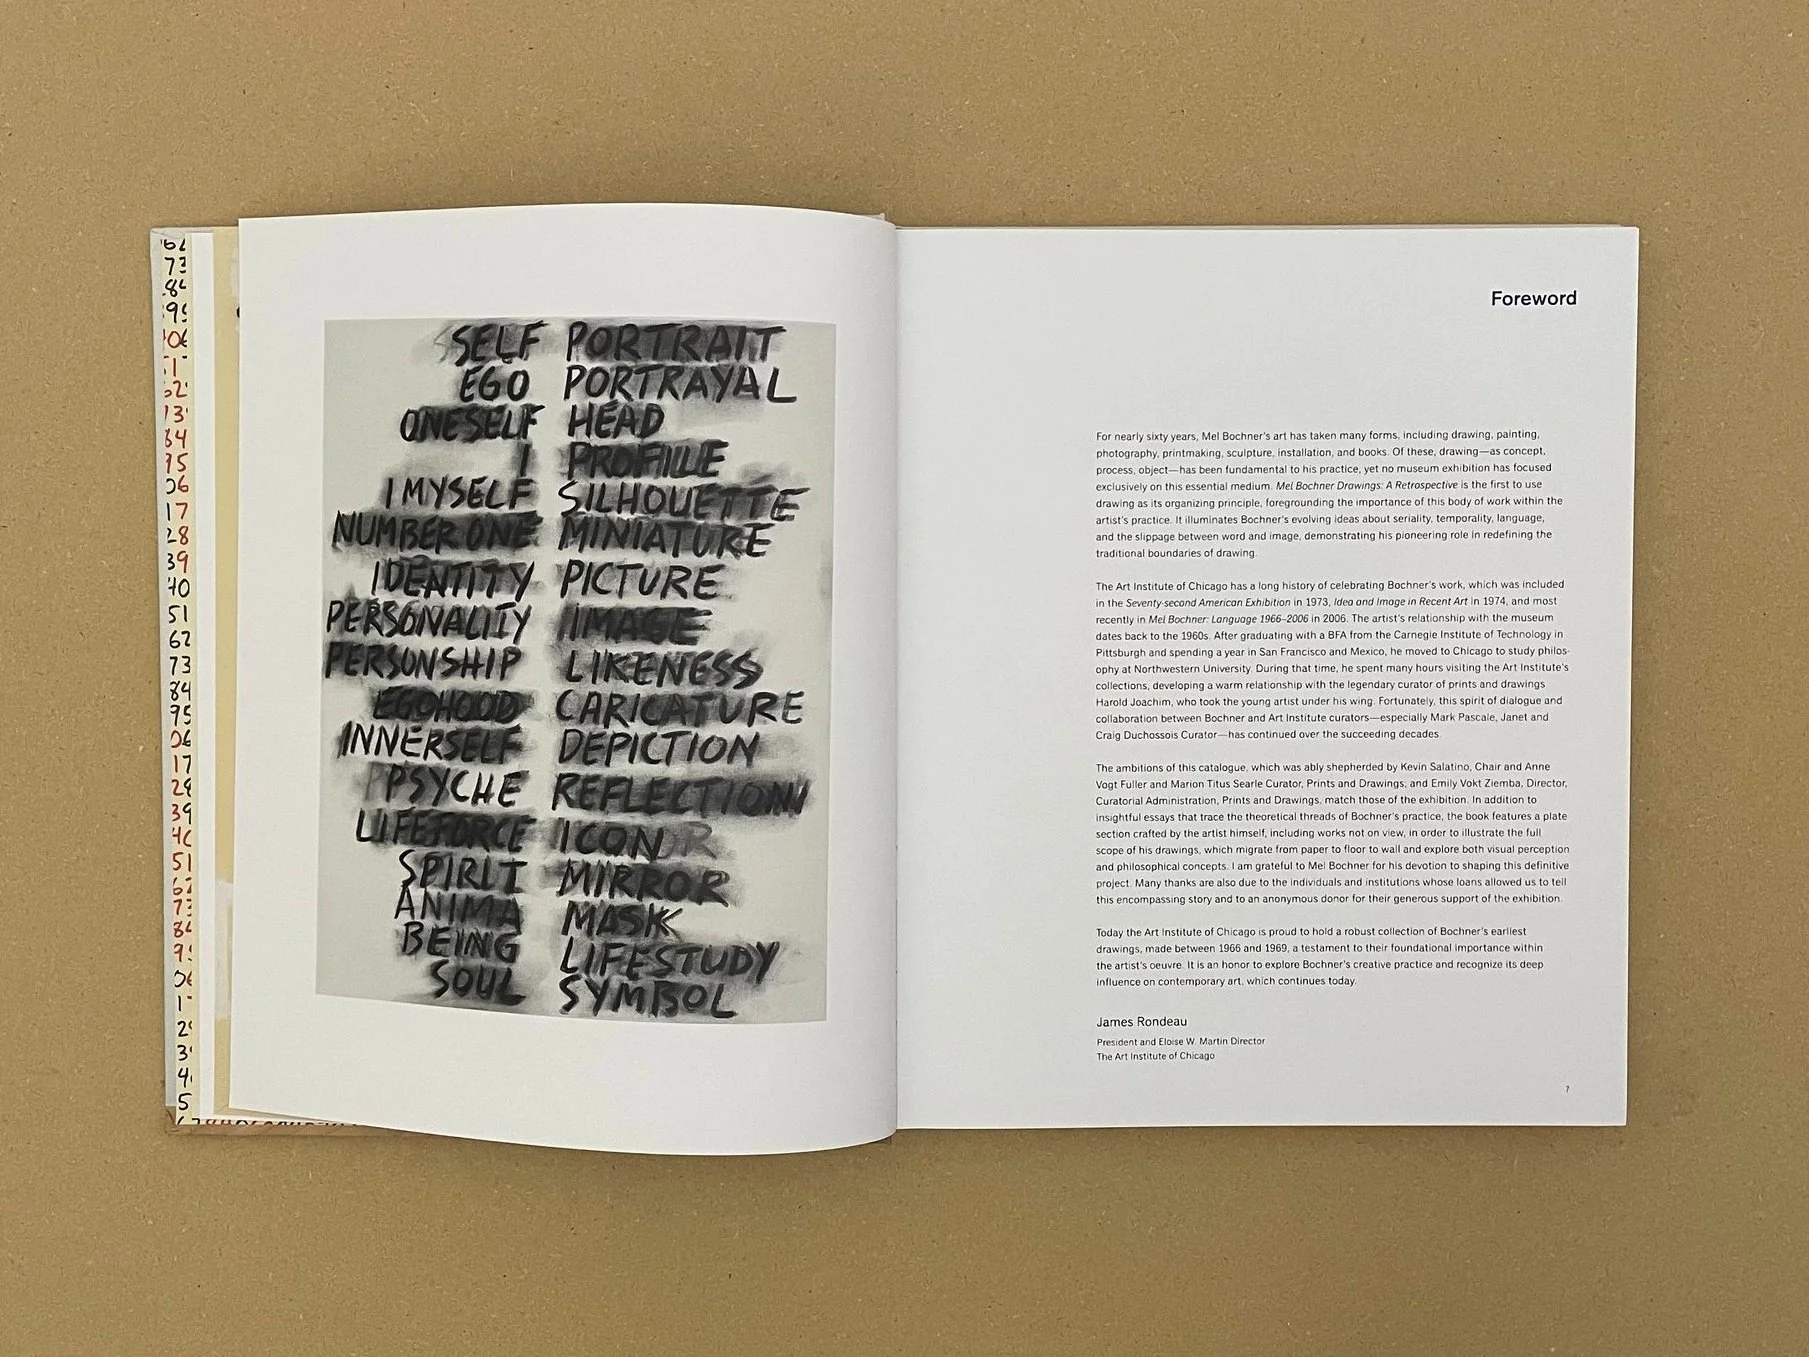 SELF PORTRAIT
EGO PORTRAYAL
ONESELF HEAD
I PROFILE
I MYSELF SILHOUETTE
NUMBER ONE MINIATURE
IDENTITY PICTURE
PERSONALITY IMAGE
PERSONSHIP LIKENESS
EGOHOOD CARICATURE
INNERSELF DEPICTION
PSYCHE REFLECTION
LIFEFORCE ICON
SPIRIT MIRROR
ANIMA MASK
BEING LIFESTUDY
SOUL SYMBOL
Foreword
For nearly sixty years, Mel Bochner's art has taken many forms, including drawing, painting,
photography, printmaking, sculpture, installation, and books. Of these, drawing—as concept,
process, object—has been fundamental to his practice, yet no museum exhibition has focused
exclusively on this essential medium. Mel Bochner Drawings: A Retrospective is the first to use
drawing as its organizing principle, foregrounding the importance of this body of work within the
artist's practice. It illuminates Bochner's evolving ideas about seriality, temporality, language,
and the slippage between word and image, demonstrating his pioneering role in redefining the
traditional boundaries of drawing.
The Art Institute of Chicago has a long history of celebrating Bochner's work, which was included
in the Seventy-second American Exhibition in 1973, Idea and Image in Recent Art in 1974, and most
recently in Mel Bochner: Language 1966–2006 in 2006. The artist's relationship with the museum
dates back to the 1960s. After graduating with a BFA from the Carnegie Institute of Technology in
Pittsburgh and spending a year in San Francisco and Mexico, he moved to Chicago to study philos-
ophy at Northwestern University. During that time, he spent many hours visiting the Art Institute's
collections, developing a warm relationship with the legendary curator of prints and drawings
Harold Joachim, who took the young artist under his wing. Fortunately, this spirit of dialogue and
collaboration between Bochner and Art Institute curators—especially Mark Pascale, Janet and
Craig Duchossois Curator—has continued over the succeeding decades.
The ambitions of this catalogue, which was ably shepherded by Kevin Salatino, Chair and Anne
Vogt Fuller and Marion Titus Searle Curator, Prints and Drawings, and Emily Vokt Ziemba, Director,
Curatorial Administration, Prints and Drawings, match those of the exhibition. In addition to
insightful essays that trace the theoretical threads of Bochner's practice, the book features a plate
section crafted by the artist himself, including works not on view, in order to illustrate the full
scope of his drawings, which migrate from paper to floor to wall and explore both visual perception
and philosophical concepts. I am grateful to Mel Bochner for his devotion to shaping this definitive
project. Many thanks are also due to the individuals and institutions whose loans allowed us to tell
this encompassing story and to an anonymous donor for their generous support of the exhibition.
Today the Art Institute of Chicago is proud to hold a robust collection of Bochner's earliest
drawings, made between 1966 and 1969, a testament to their foundational importance within
the artist's oeuvre. It is an honor to explore Bochner's creative practice and recognize its deep
influence on contemporary art, which continues today.
James Rondeau
President and Eloise W. Martin Director
The Art Institute of Chicago
7